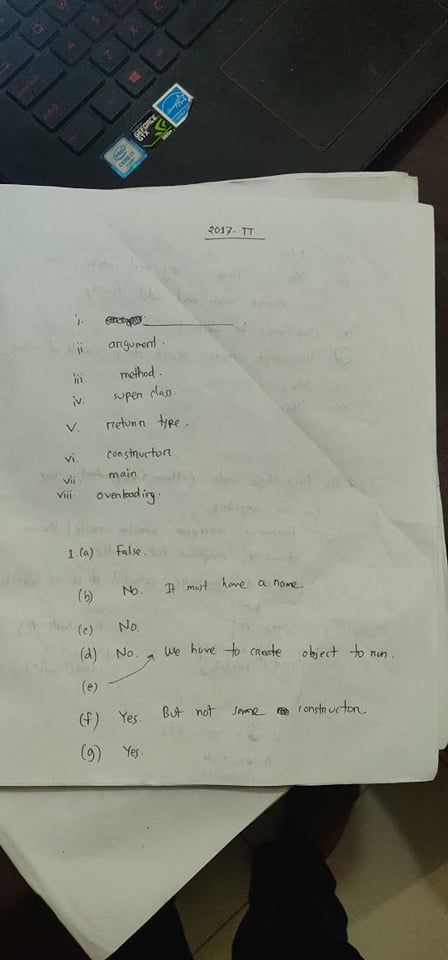 Q
W
A
S
Z
X
C
GEFORCE
GTX
intel
2017- TT
i.
ii. argument.
iii. method.
iv. super class.
v. return type.
vi. constructor
vii. main.
viii. overloading.
1.(a) False.
(b) No. It must have a name.
(c) No.
(d) No. We have to create object to run.
(e)
(f) Yes. But not same constructor.
(g) Yes.